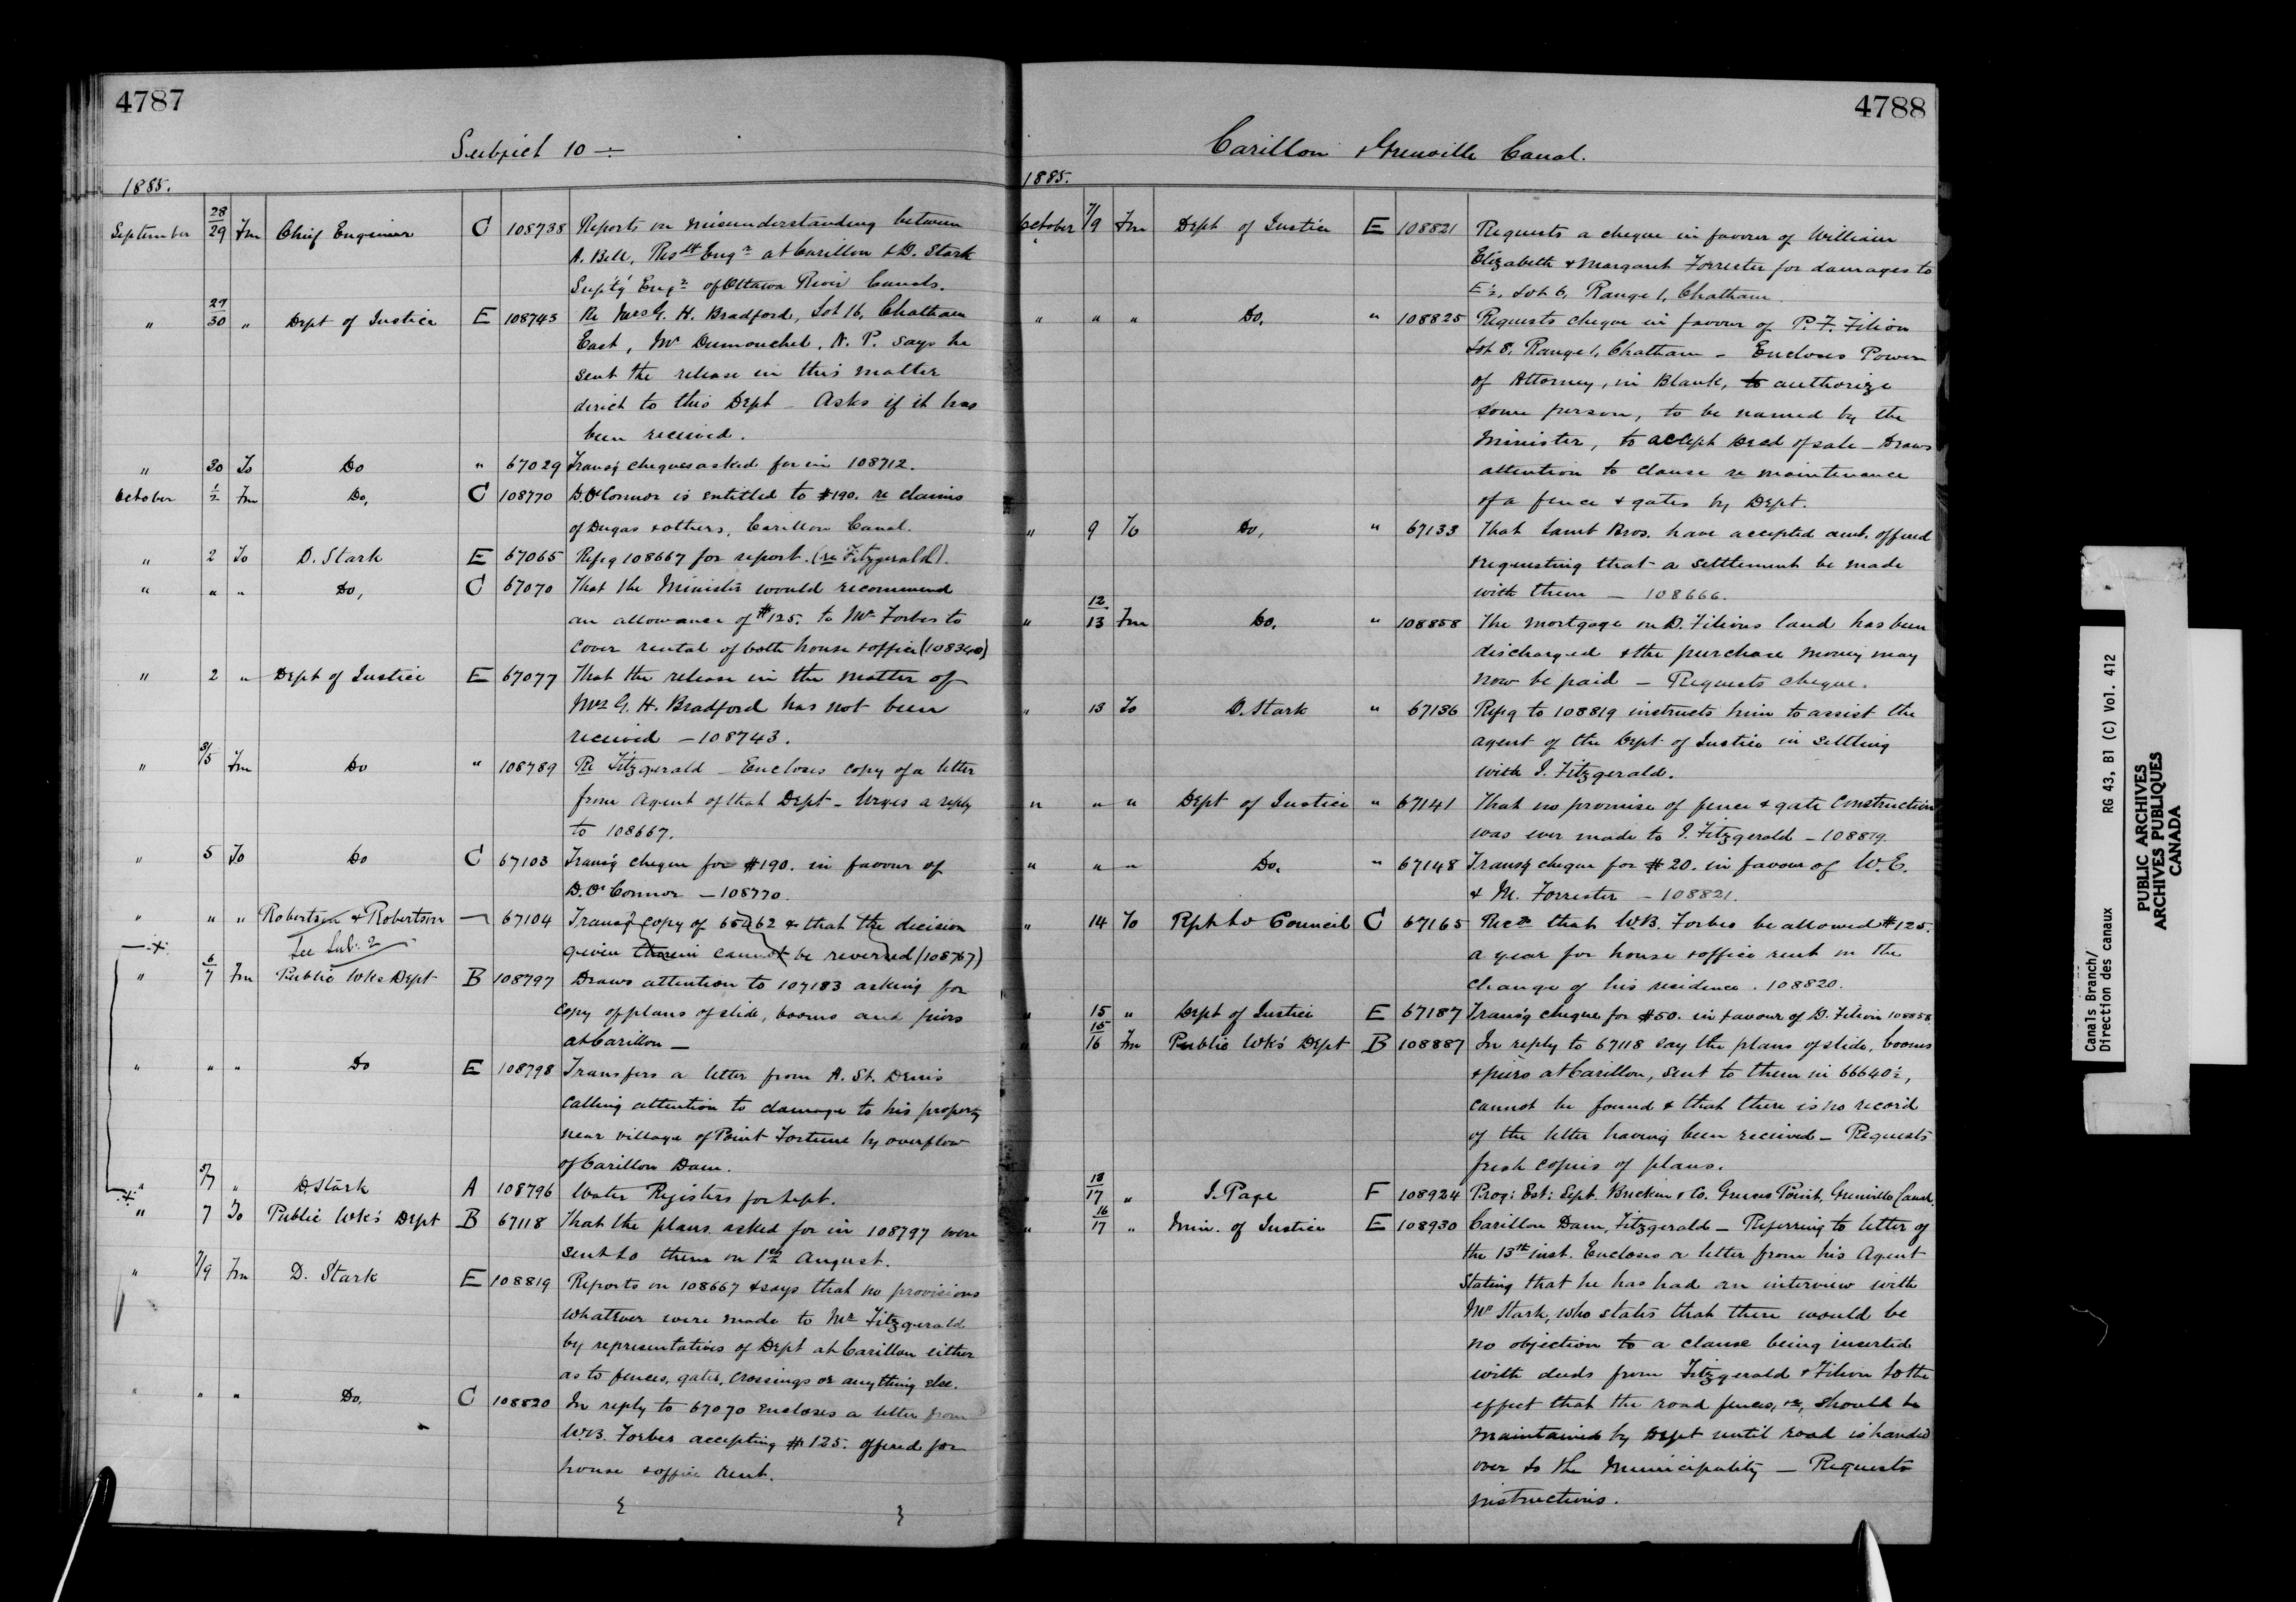 4787
Subject 10 ÷
1885.
September 28/29 Fm Chief Engineer C 108738 Reports on misunderstanding between
A. Bell, Resdt Engr at Carillon & D. Stark
Supt'g Engr of Ottawa River Canals.
" 29/30 " Dept of Justice E 108743 Re Mrs G. H. Bradford, Lot 16, Chatham
East, Mr Dumouchel, N. P. says he
sent the release in this matter
direct to this Dept – Asks if it has
been received.
" 30 To Do " 67029 Transg cheques asked for in 108712.
October 1/2 Fm Do, C 108770 D. O'Connor is entitled to $190. re claims
of Dugas & others, Carillon Canal.
" 2 To D. Stark E 67065 Refg 108667 for report. (re Fitzgerald).
" " " Do, C 67070 That the Minister would recommend
an allowance of $125. to Mr Forbes to
cover rental of both house & office (108340)
" 2 " Dept of Justice E 67077 That the release in the matter of
Mrs G. H. Bradford has not been
received – 108743.
" 3/5 Fm Do " 108789 Re Fitzgerald – Encloses copy of a letter
from Agent of that Dept – Urges a reply
to 108667.
" 5 To Do C 67103 Trans'g cheque for $190. in favour of
D. O'Connor – 108770.
" " " Robertson & Robertson — 67104 Transg copy of 65462 & that the decision
See Sub. 2 given therein cannot be reversed (108767)
" 6/7 Fm Public Wks Dept B 108797 Draws attention to 107183 asking for
copy of plans of slide, booms and piers
at Carillon –
" " " Do E 108798 Transfers a letter from A. St. Denis
calling attention to damage to his property
near village of Point Fortune by overflow
of Carillon Dam.
" 5/7 " D. Stark A 108796 Water Registers for Sept.
" 7 To Public Wk's Dept B 67118 That the plans asked for in 108797 were
sent to them on 1st August.
" 7/9 Fm D. Stark E 108819 Reports on 108667 & says that no provisions
whatever were made to Mr Fitzgerald
by representatives of Dept at Carillon either
as to fences, gates, crossings or anything else.
" " " Do. C 108820 In reply to 67070 encloses a letter from
W.B. Forbes accepting $125. offered for
house & office rent.
4788
Carillon & Grenville Canal.
1885.
October 7/9 Fm Dept of Justice E 108821 Requests a cheque in favour of William
Elizabeth & Margaret Forrester for damages to
E½, Lot 6, Range 1, Chatham.
" " " Do, " 108825 Requests cheque in favour of P. F. Filion
Lot 8, Range 1, Chatham – Encloses Power
of Attorney, in Blank, to authorize
some person, to be named by the
Minister, to accept Deed of sale – Draws
attention to clause re maintenance
of a fence & gates by Dept.
" 9 To Do, " 67133 That Lamb Bros. have accepted amt. offered
requesting that a settlement be made
with them – 108666.
" 12/13 Fm Do. " 108858 The mortgage on D. Filions land has been
discharged & the purchase money may
now be paid – Requests cheque.
" 13 To D. Stark " 67136 Refg to 108819 instructs him to assist the
agent of the Dept of Justice in settling
with J. Fitzgerald.
" " " Dept of Justice " 67141 That no promise of fence & gate construction
was ever made to J. Fitzgerald – 108819.
" " " Do. " 67148 Transg cheque for $20. in favour of W. E.
& M. Forrester – 108821.
" 14 To Rpt to Council C 67165 Recds that W.B. Forbes be allowed $125.
a year for house & office rent in the
change of his residence. 108820.
" 15 " Dept of Justice E 67187 Trans'g cheque for $50. in favour of D. Filion 108858
" 15/16 Fm Public Wk's Dept B 108887 In reply to 67118 say the plans of slide, booms
& piers at Carillon, sent to them in 66640½,
cannot be found & that there is no record
of the letter having been received – Requests
fresh copies of plans.
" 18/17 " J. Page F 108924 Prog: Est: Sept. Grenville Canal.
" 16/17 " Min. of Justice E 108930 Carillon Dam, Fitzgerald – Referring to letter of
the 13th inst. Encloses a letter from his Agent
stating that he has had an interview with
Mr Stark, who states that there would be
no objection to a clause being inserted
with deeds from Fitzgerald & Filion to the
effect that the road fences, &c, should be
maintained by Dept until road is handed
over to the Municipality – Requests
instructions.
Canals Branch/
Direction des canaux RG 43, B1 (C) Vol. 412
PUBLIC ARCHIVES
ARCHIVES PUBLIQUES
CANADA